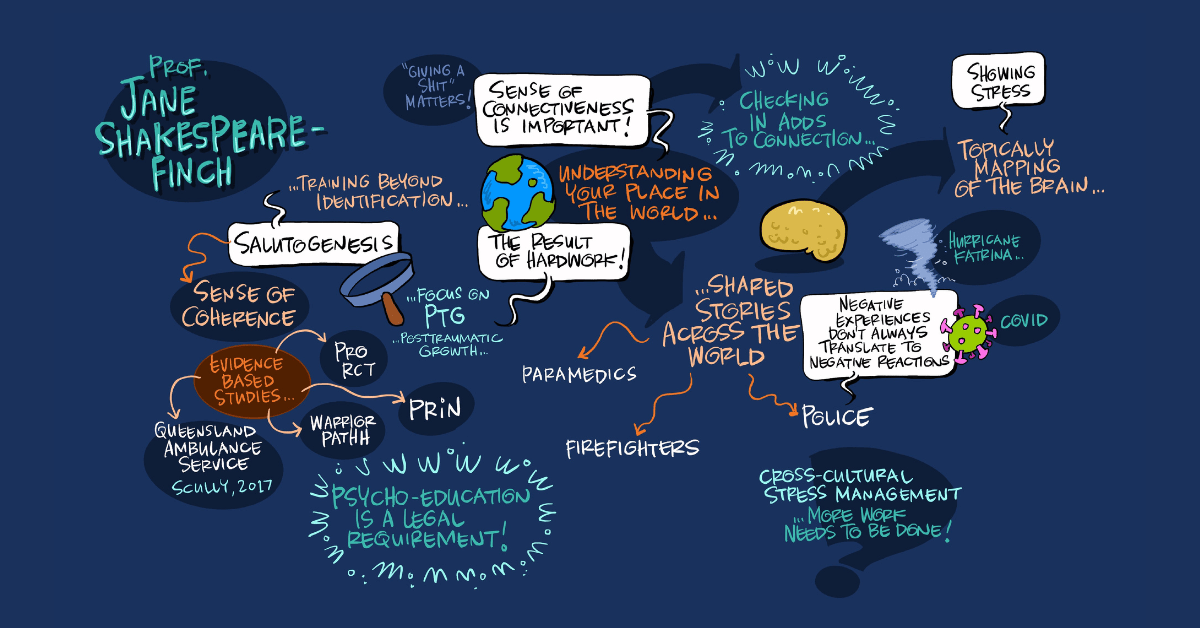 PROF.
JANE
SHAKESPEARE-
FINCH
"GIVING A
SHIT"
MATTERS!
SENSE OF
CONNECTIVENESS
IS IMPORTANT!
CHECKING
IN ADDS
TO CONNECTION...
SHOWING
STRESS
TOPICALLY
MAPPING
OF THE BRAIN...
...TRAINING BEYOND
IDENTIFICATION...
UNDERSTANDING
YOUR PLACE IN
THE WORLD...
SALUTOGENESIS
THE RESULT
OF HARDWORK!
HURRICANE
KATRINA...
SENSE OF
COHERENCE
...FOCUS ON
PTG
...POSTTRAUMATIC
GROWTH...
...SHARED
STORIES
ACROSS THE
WORLD
NEGATIVE
EXPERIENCES
DON'T ALWAYS
TRANSLATE TO
NEGATIVE REACTIONS
COVID
EVIDENCE
BASED
STUDIES...
PRO
RCT
PRIN
WARRIOR
PATHH
QUEENSLAND
AMBULANCE
SERVICE
SCULLY, 2017
PARAMEDICS
FIREFIGHTERS
POLICE
PSYCHO-EDUCATION
IS A LEGAL
REQUIREMENT!
CROSS-CULTURAL
STRESS MANAGEMENT
...MORE WORK
NEEDS TO BE DONE!